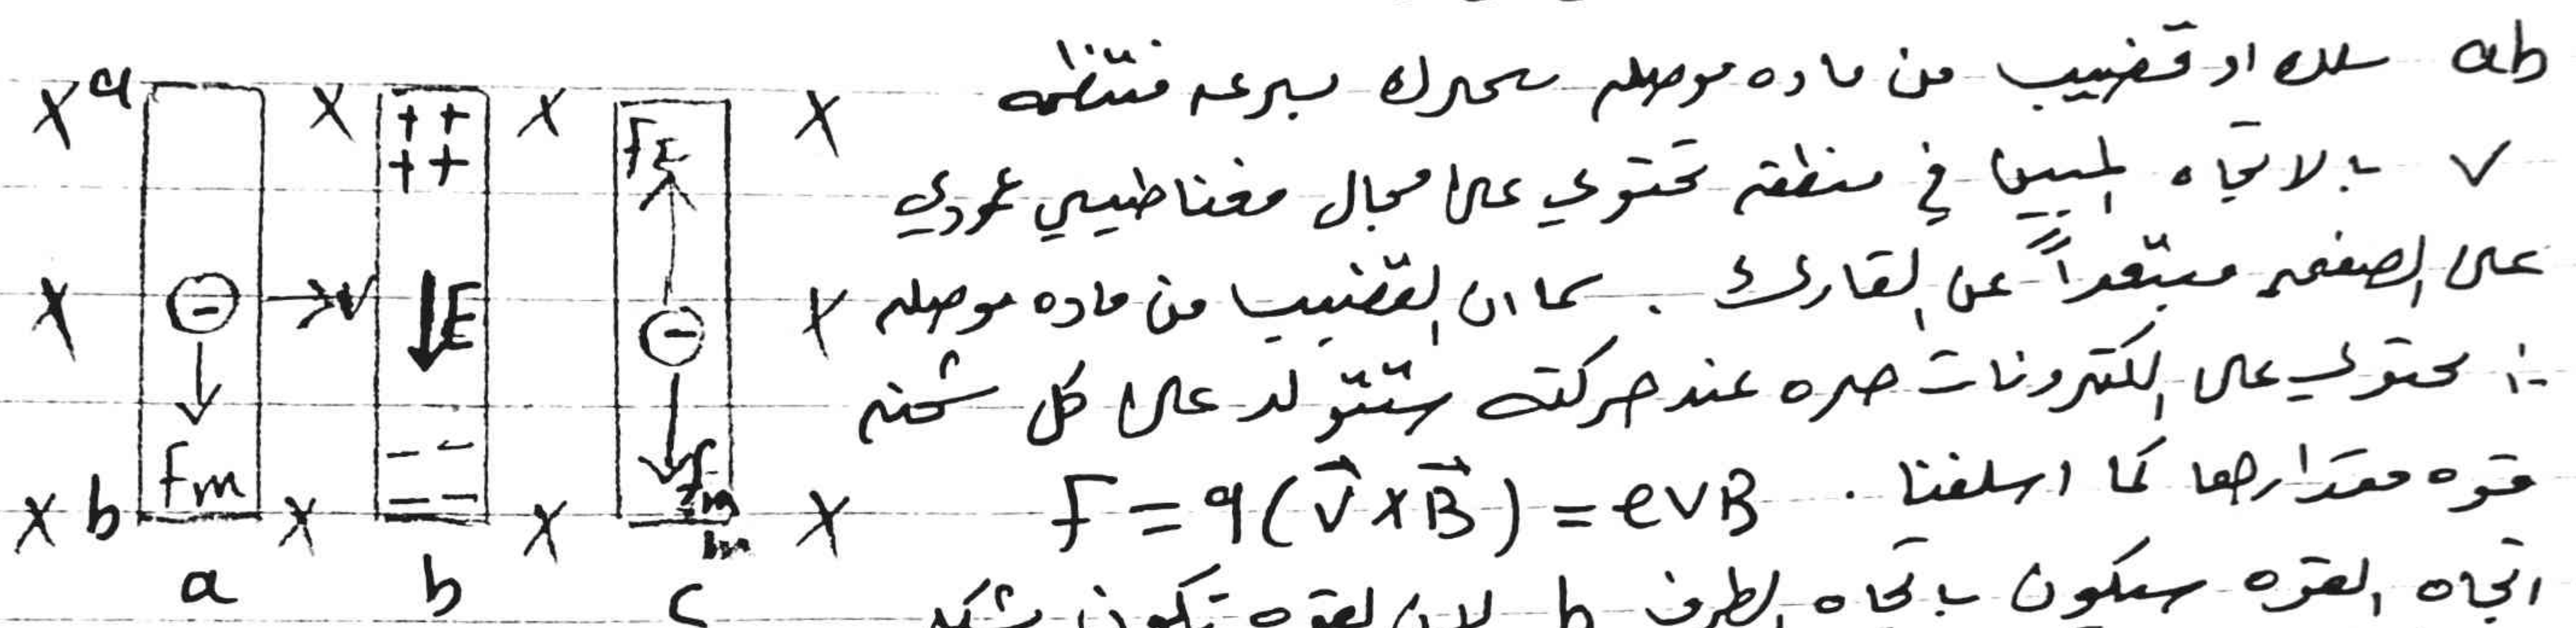 ab سلك او قضيب من ماده موصله يتحرك بسرعه منتظمه
v بالاتجاه المبين في منطقه تحتوي على مجال مغناطيسي عمودي
على الصفحه مبتعداً عن القارئ . بما ان القضيب من ماده موصله
اذن يحتوي على الكترونات حره عند حركته ستتولد على كل شحنه
قوه مقدارها كما اسلفنا . F = q(v⃗ × B⃗) = evB
اتجاه القوه سيكون باتجاه الطرف b لان القوه تكون بشكل
x a x + + x x
+ + FE
x - → v E - x
- -
Fm Fm
x b x - - x x
a b c